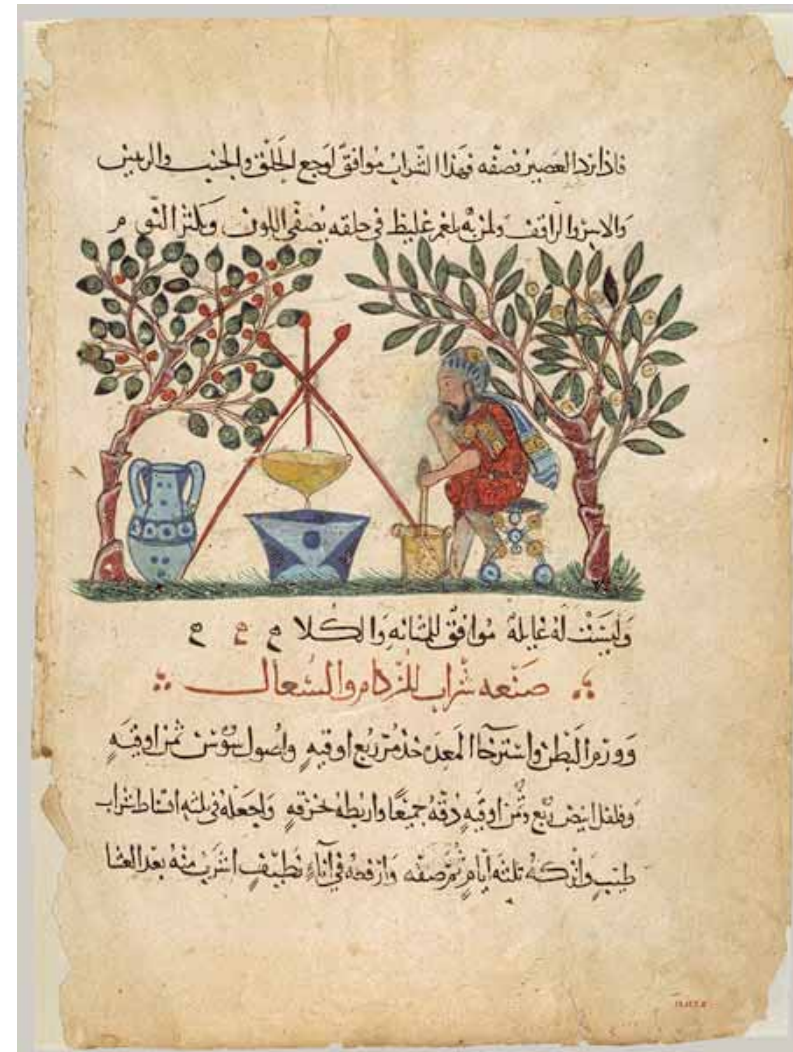 فاذا برد العصير فصفه فهذا الشراب موافق لوجع الحلق والجنب والريش
والاسر والراقف ولمن به بلغم غليظ في حلقه يصفي اللون ويكثر النوم م
وليست له غايلة موافق للمثانه والكلا ح ح ح
صنعه شراب للزكام والسعال
وورم البطن واسترخا المعده خذ مر ربع اوقيه واصول سوسن ثمن اوقيه
وفلفل ابيض ربع وثمن اوقيه دقه جميعا واربطه بخرقه واجعله في ثلثه اقساط شراب
طيب واتركه ثلثه ايام ثم صفه وارفعه في اناء نظيف اشرب منه بعد العشا